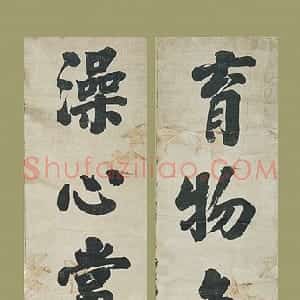 育物
澡心當
Shufaziliao.COM